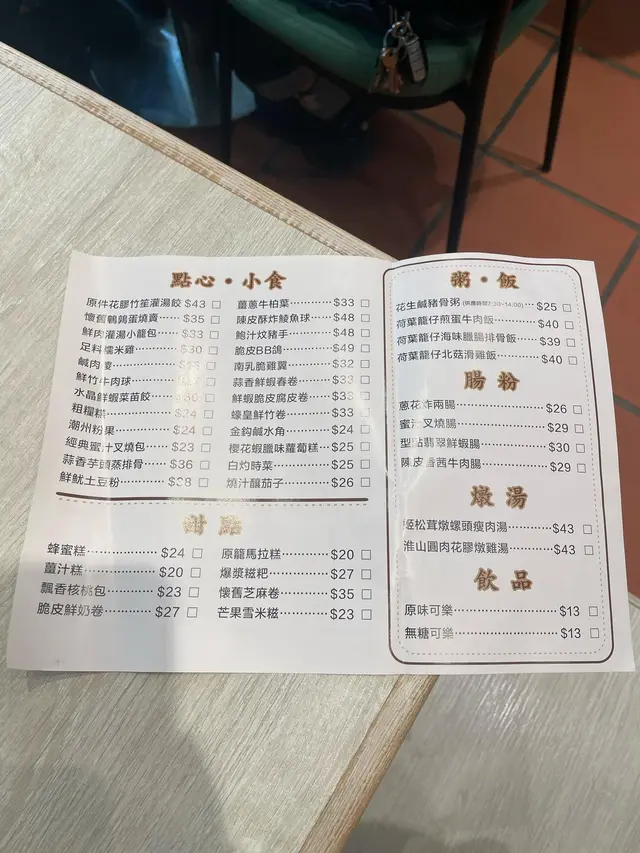 點心·小食
原件花膠竹笙灌湯餃 $43 □
懷舊鵪鶉蛋燒賣 $35 □
鮮肉灌湯小龍包 $33 □
足料糯米雞 $30 □
鹹肉糭 □
鮮竹牛肉球 □
水晶鮮蝦菜苗餃 □
粗糧糕 $24 □
潮州粉果 $24 □
經典蜜汁叉燒包 $23 □
蒜香芋頭蒸排骨 $36 □
鮮魷土豆粉 $38 □
薑蔥牛柏葉 $33 □
陳皮酥炸鯪魚球 $48 □
鮑汁炆豬手 $48 □
脆皮BB鴿 $49 □
南乳脆雞翼 $32 □
蒜香鮮蝦春卷 $33 □
鮮蝦脆皮腐皮卷 $33 □
蠔皇鮮竹卷 $33 □
金鈎鹹水角 $24 □
櫻花蝦臘味蘿蔔糕 $25 □
白灼時菜 $25 □
燒汁釀茄子 $26 □
甜點
蜂蜜糕 $24 □
薑汁糕 $20 □
飄香核桃包 $23 □
脆皮鮮奶卷 $27 □
原籠馬拉糕 $20 □
爆漿糍粑 $27 □
懷舊芝麻卷 $35 □
芒果雪米糍 $23 □
粥·飯
花生鹹豬骨粥 (供應時間7:30~14:00) $25 □
荷葉籠仔煎蛋牛肉飯 $40 □
荷葉籠仔海味臘腸排骨飯 $39 □
荷葉籠仔北菇滑雞飯 $40 □
腸粉
蔥花炸兩腸 $26 □
蜜汁叉燒腸 $29 □
型點翡翠鮮蝦腸 $30 □
陳皮香茜牛肉腸 $29 □
燉湯
姬松茸燉螺頭瘦肉湯 $43 □
淮山圓肉花膠燉雞湯 $43 □
飲品
原味可樂 $13 □
無糖可樂 $13 □